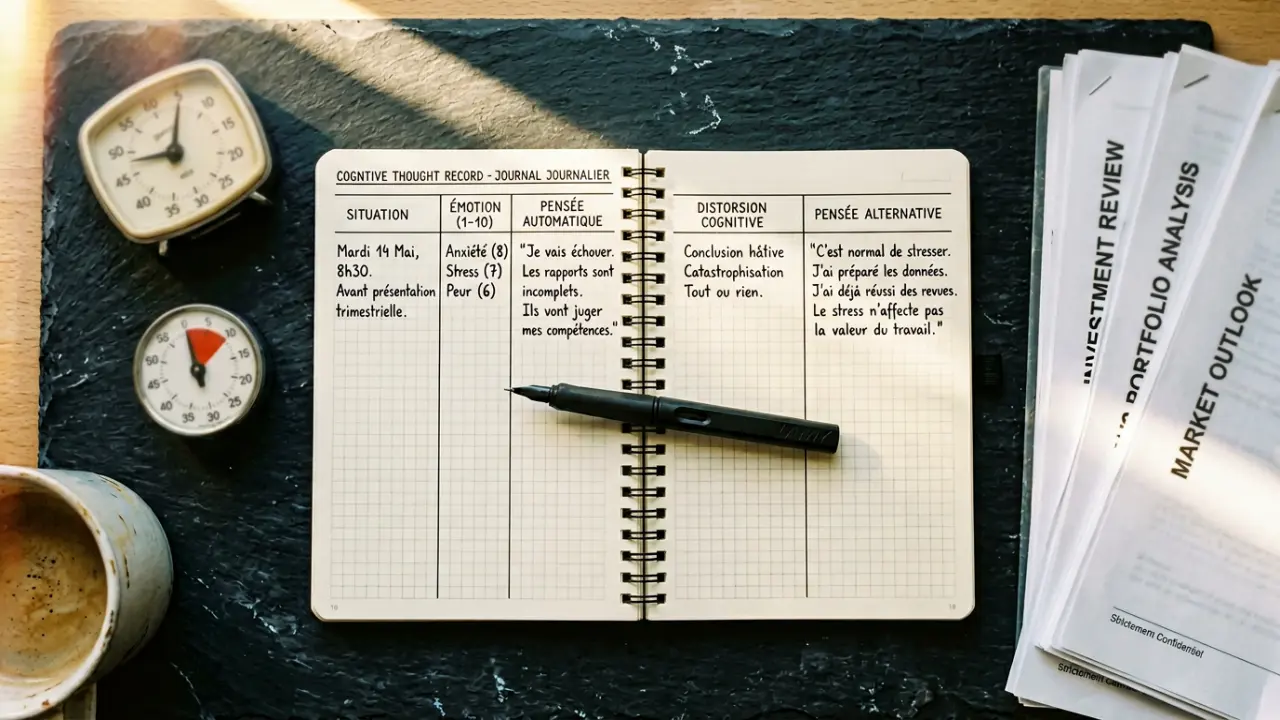 COGNTIVE THOUGHT RECORD - JOURNAL JOURNALIER
SITUATION
Mardi 14 Mai,
8h30.
Avant présentation
trimestrielle.
ÉMOTION
(1-10)
Anxiété (8)
Stress (7)
Peur (6)
PENSÉE
AUTOMATIQUE
"Je vais échouer.
Les rapports sont
incomplets.
Ils vont juger
mes compétences."
DISTORSION
COGNITIVE
Conclusion hâtive
Catastrophisation
Tout ou rien.
PENSÉE ALTERNATIVE
"C'est normal de stresser.
J'ai préparé les données.
J'ai déjà réussi des revues.
Le stress n'affecte pas
la valeur du travail."
INVESTMENT REVIEW
PORTFOLIO ANALYSIS
MARKET OUTLOOK
5
10
15
20
25
30
35
40
45
50
55
60
0
5
10
15
20
25
30
35
40
45
50
55